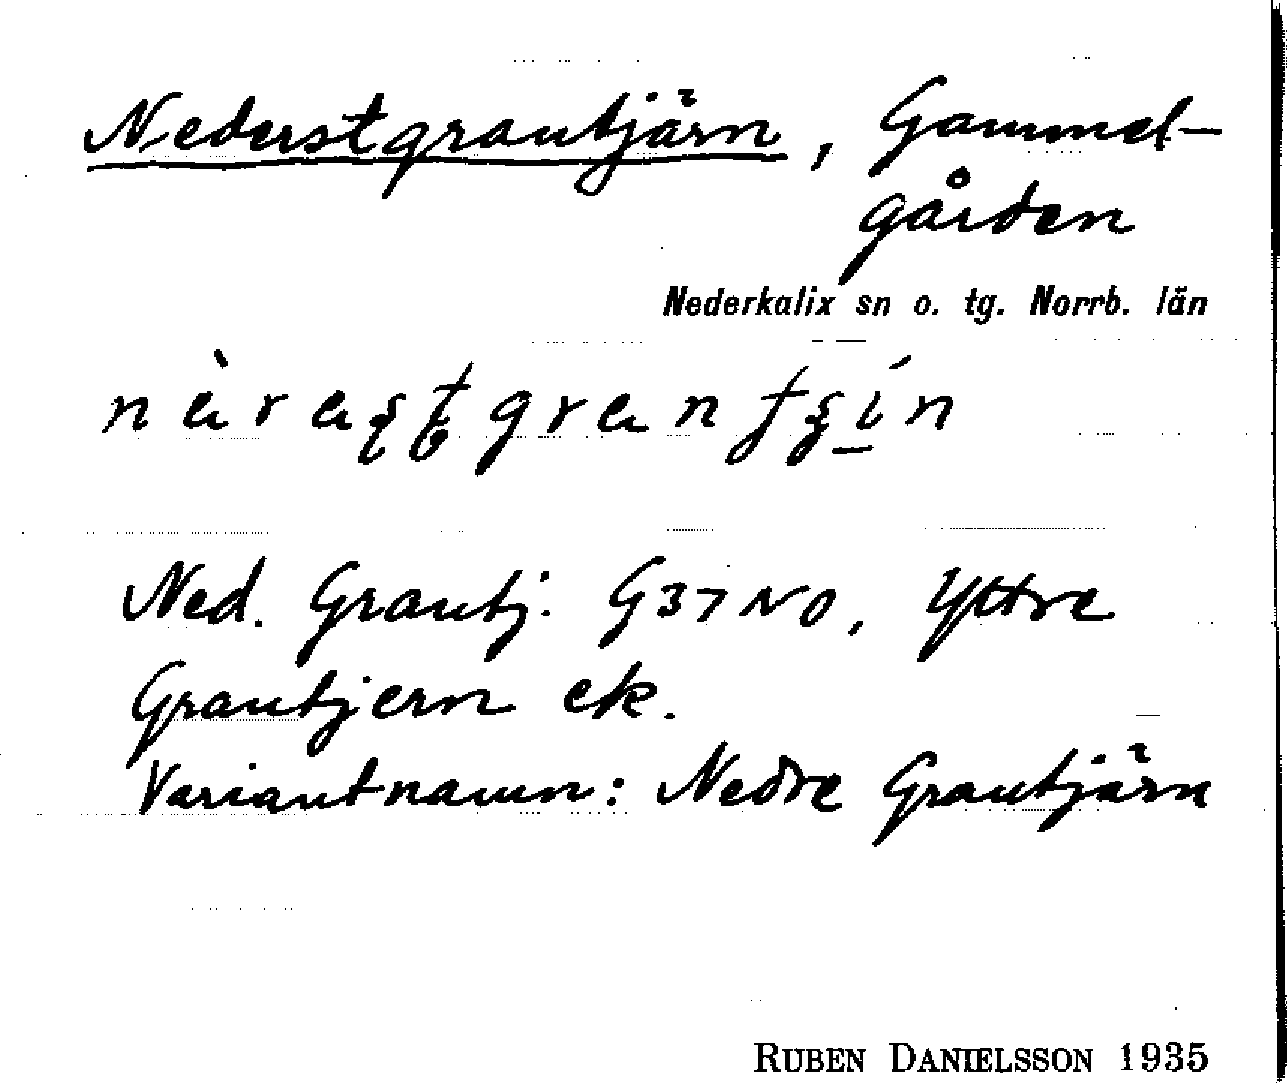 Nederstgrantjärn, Gammel-
gården
Nederkalix sn o. tg. Norrb. län
Ned. Grantj. G37NO, Yttre
Grantjern ek.
Variantnamn: Nedre Grantjärn
RUBEN DANIELSSON 1935